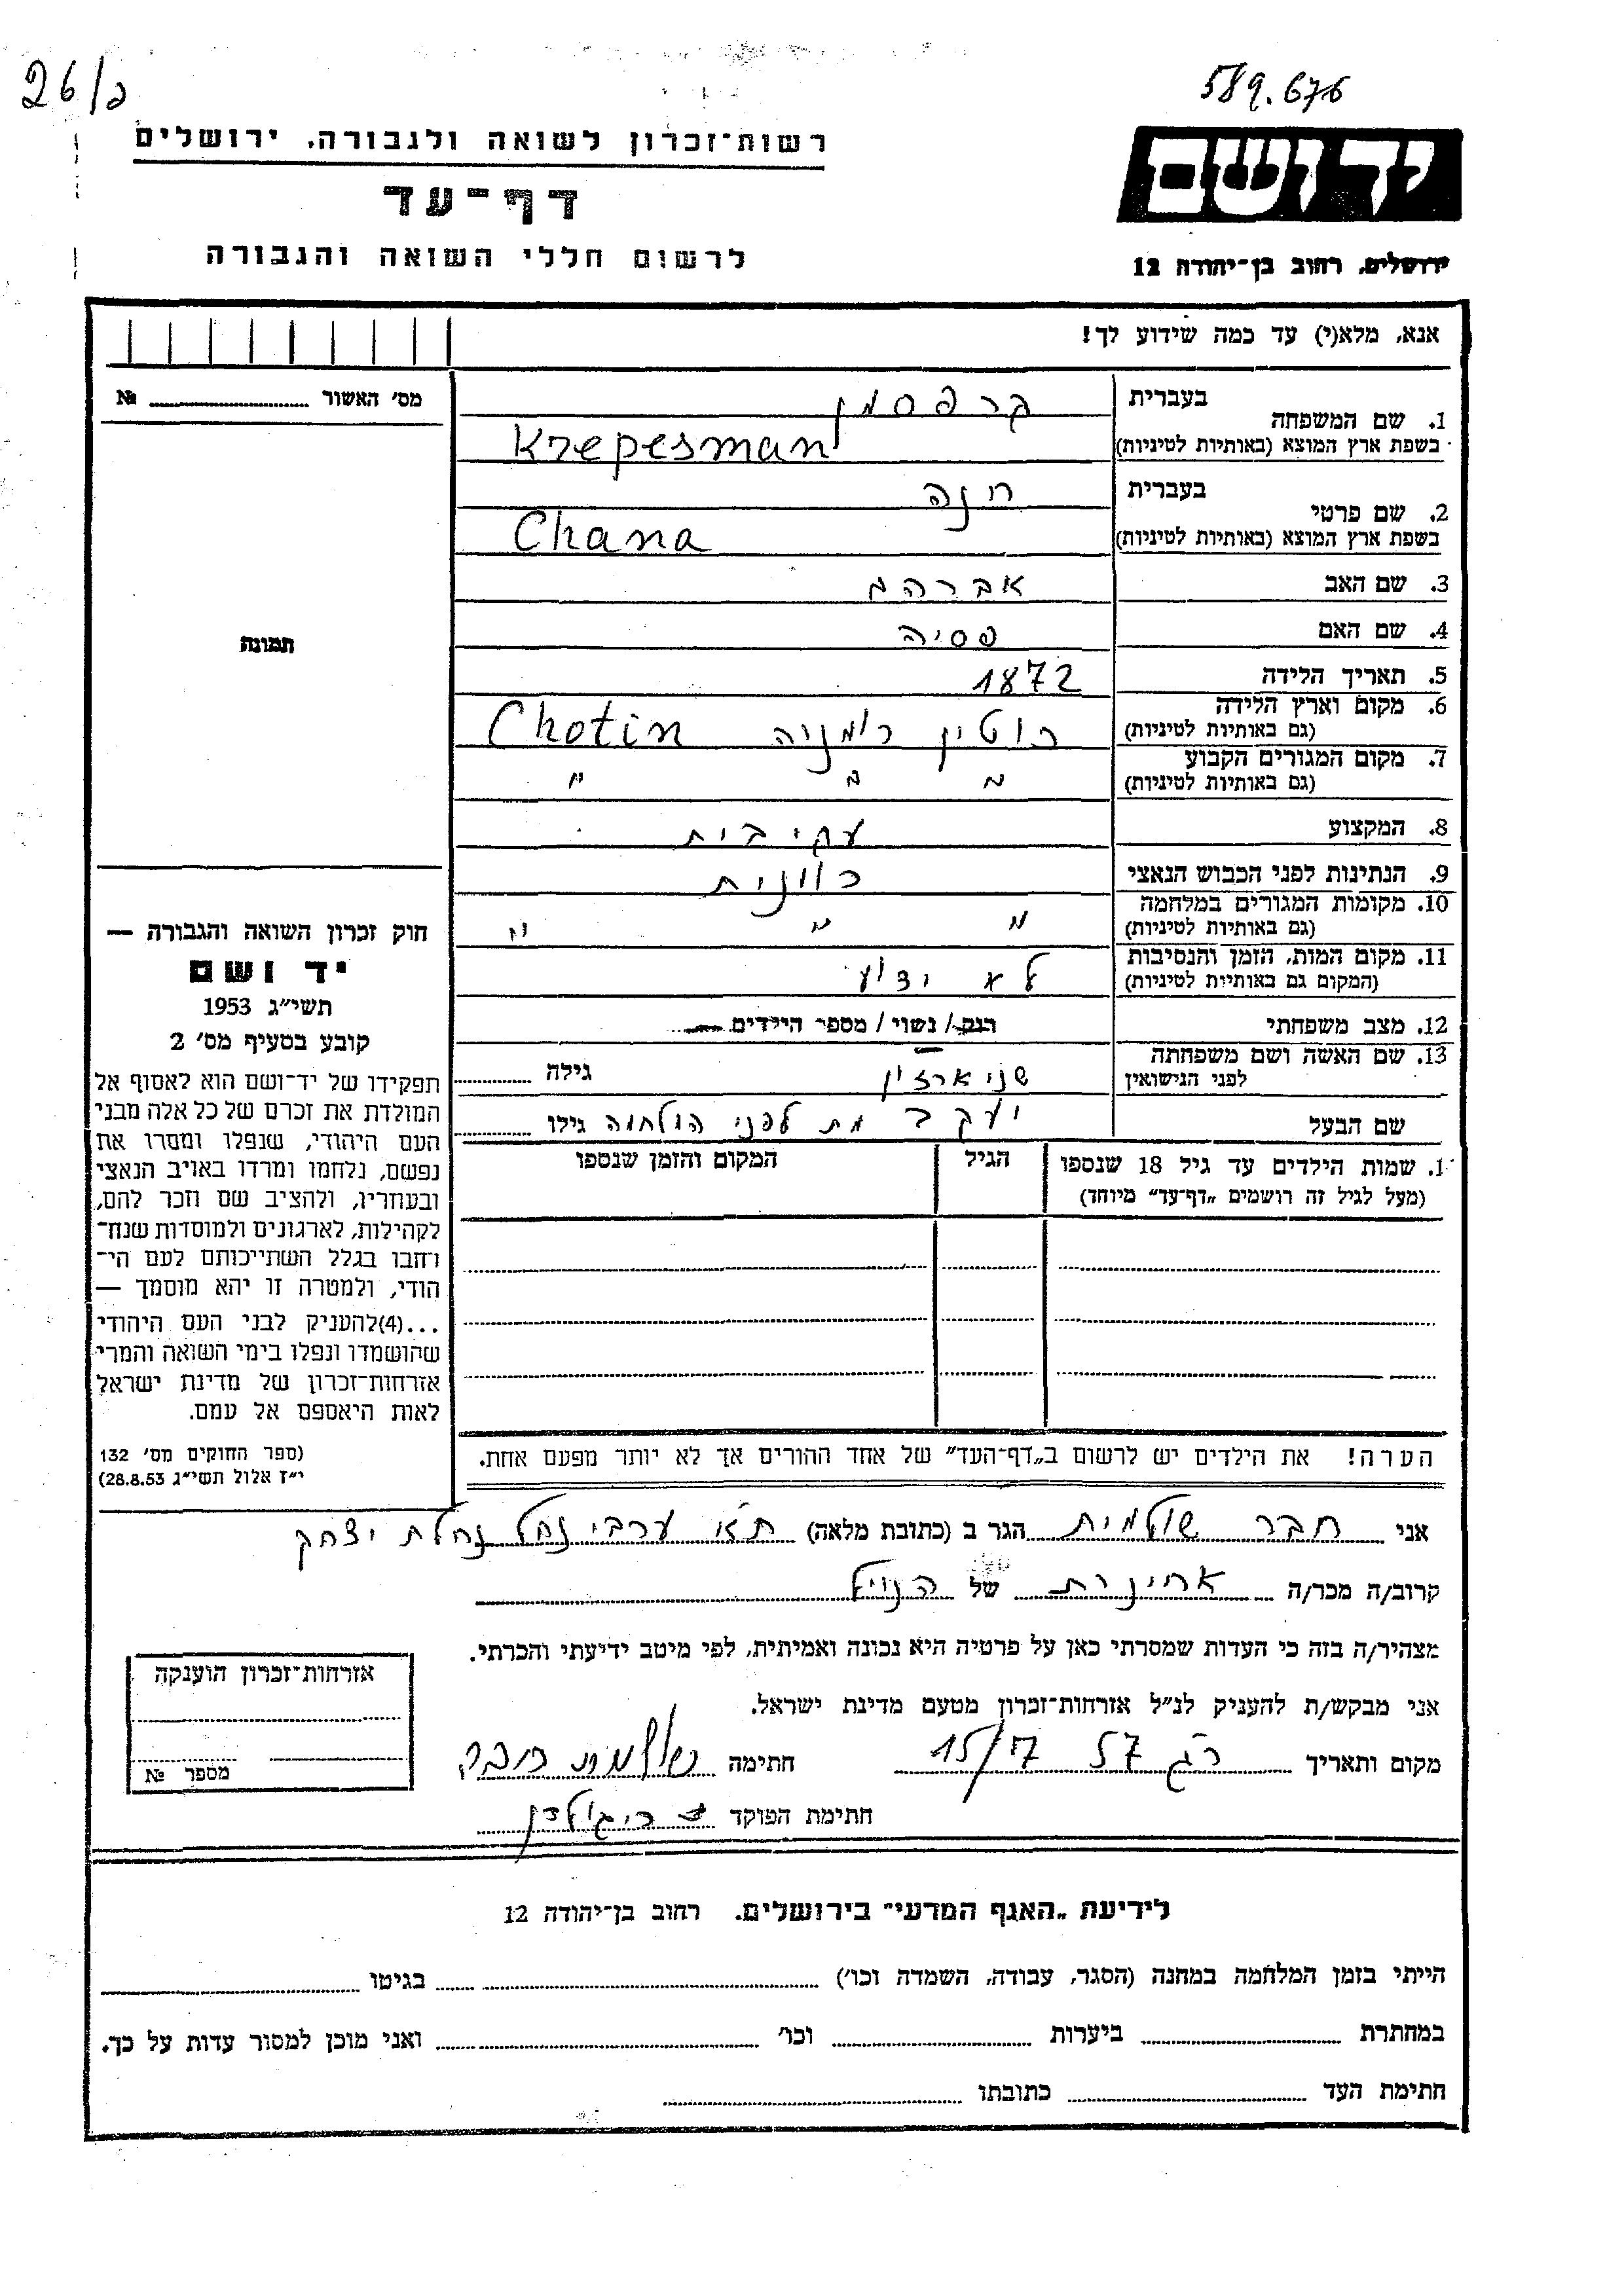 26/כ
589.676
רשות־זכרון לשואה ולגבורה, ירושלים
דף־עד
לרשום חללי השואה והגבורה
יד ושם
ירושלים, רחוב בן־יהודה 12
אנא, מלא(י) עד כמה שידוע לך!
מס' האשור № ........
תמונה
בעברית קרפסמן
1. שם המשפחה
בשפת ארץ המוצא (באותיות לטיניות) Krepesman
בעברית חנה
2. שם פרטי
בשפת ארץ המוצא (באותיות לטיניות) Chana
3. שם האב אברהם
4. שם האם פסיה
5. תאריך הלידה 1872
6. מקום וארץ הלידה
(גם באותיות לטיניות) חוטין רומניה Chotin
7. מקום המגורים הקבוע
(גם באותיות לטיניות) " " "
8. המקצוע עק' בית
9. הנתינות לפני הכבוש הנאצי רומנית
10. מקומות המגורים במלחמה
(גם באותיות לטיניות) " " "
11. מקום המות, הזמן והנסיבות
(המקום גם באותיות לטיניות) לא ידוע
12. מצב משפחתי רווק / נשוי / מספר הילדים
13. שם האשה ושם משפחתה
לפני הנישואין גילה ........
שם הבעל יעקב מת לפני המלחמה גילו ........
1. שמות הילדים עד גיל 18 שנספו הגיל המקום והזמן שנספו
(מעל לגיל זה רושמים „דף־עד" מיוחד)
הערה! את הילדים יש לרשום ב„דף־העד" של אחד ההורים אך לא יותר מפעם אחת.
חוק זכרון השואה והגבורה —
יד ושם
תשי"ג 1953
קובע בסעיף מס' 2
תפקידו של יד־ושם הוא לאסוף אל
המולדת את זכרם של כל אלה מבני
העם היהודי, שנפלו ומסרו את
נפשם, נלחמו ומרדו באויב הנאצי
ובעוזריו, ולהציב שם וזכר להם,
לקהילות, לארגונים ולמוסדות שנח־
רחבו בגלל השתייכותם לעם הי־
הודי, ולמטרה זו יהא מוסמך —
...(4)להעניק לבני העם היהודי
שהושמדו ונפלו בימי השואה והמרי
אזרחות־זכרון של מדינת ישראל
לאות היאספם אל עמם.
(ספר החוקים מס' 132
י"ז אלול תשי"ג 28.8.53)
אני חבר שולמית הגר ב (כתובת מלאה) ת"א ערבי נחל נחלת יצחק
קרוב/ה מכר/ה של הנ"ל
מצהיר/ה בזה כי העדות שמסרתי כאן על פרטיה היא נכונה ואמיתית, לפי מיטב ידיעתי והכרתי.
אני מבקש/ת להעניק לנ"ל אזרחות־זכרון מטעם מדינת ישראל.
מקום ותאריך ר"ג 57 15/7 חתימה שולמית חבר
חתימת הפוקד
אזרחות־זכרון הוענקה
מספר №
לידיעת „האגף המדעי" בירושלים, רחוב בן־יהודה 12
הייתי בזמן המלחמה במחנה (הסגר, עבודה, השמדה וכו') ........ בגיטו ........
במחתרת ........ ביערות ........ וכו' ........ ואני מוכן למסור עדות על כך.
חתימת העד ........ כתובתו ........